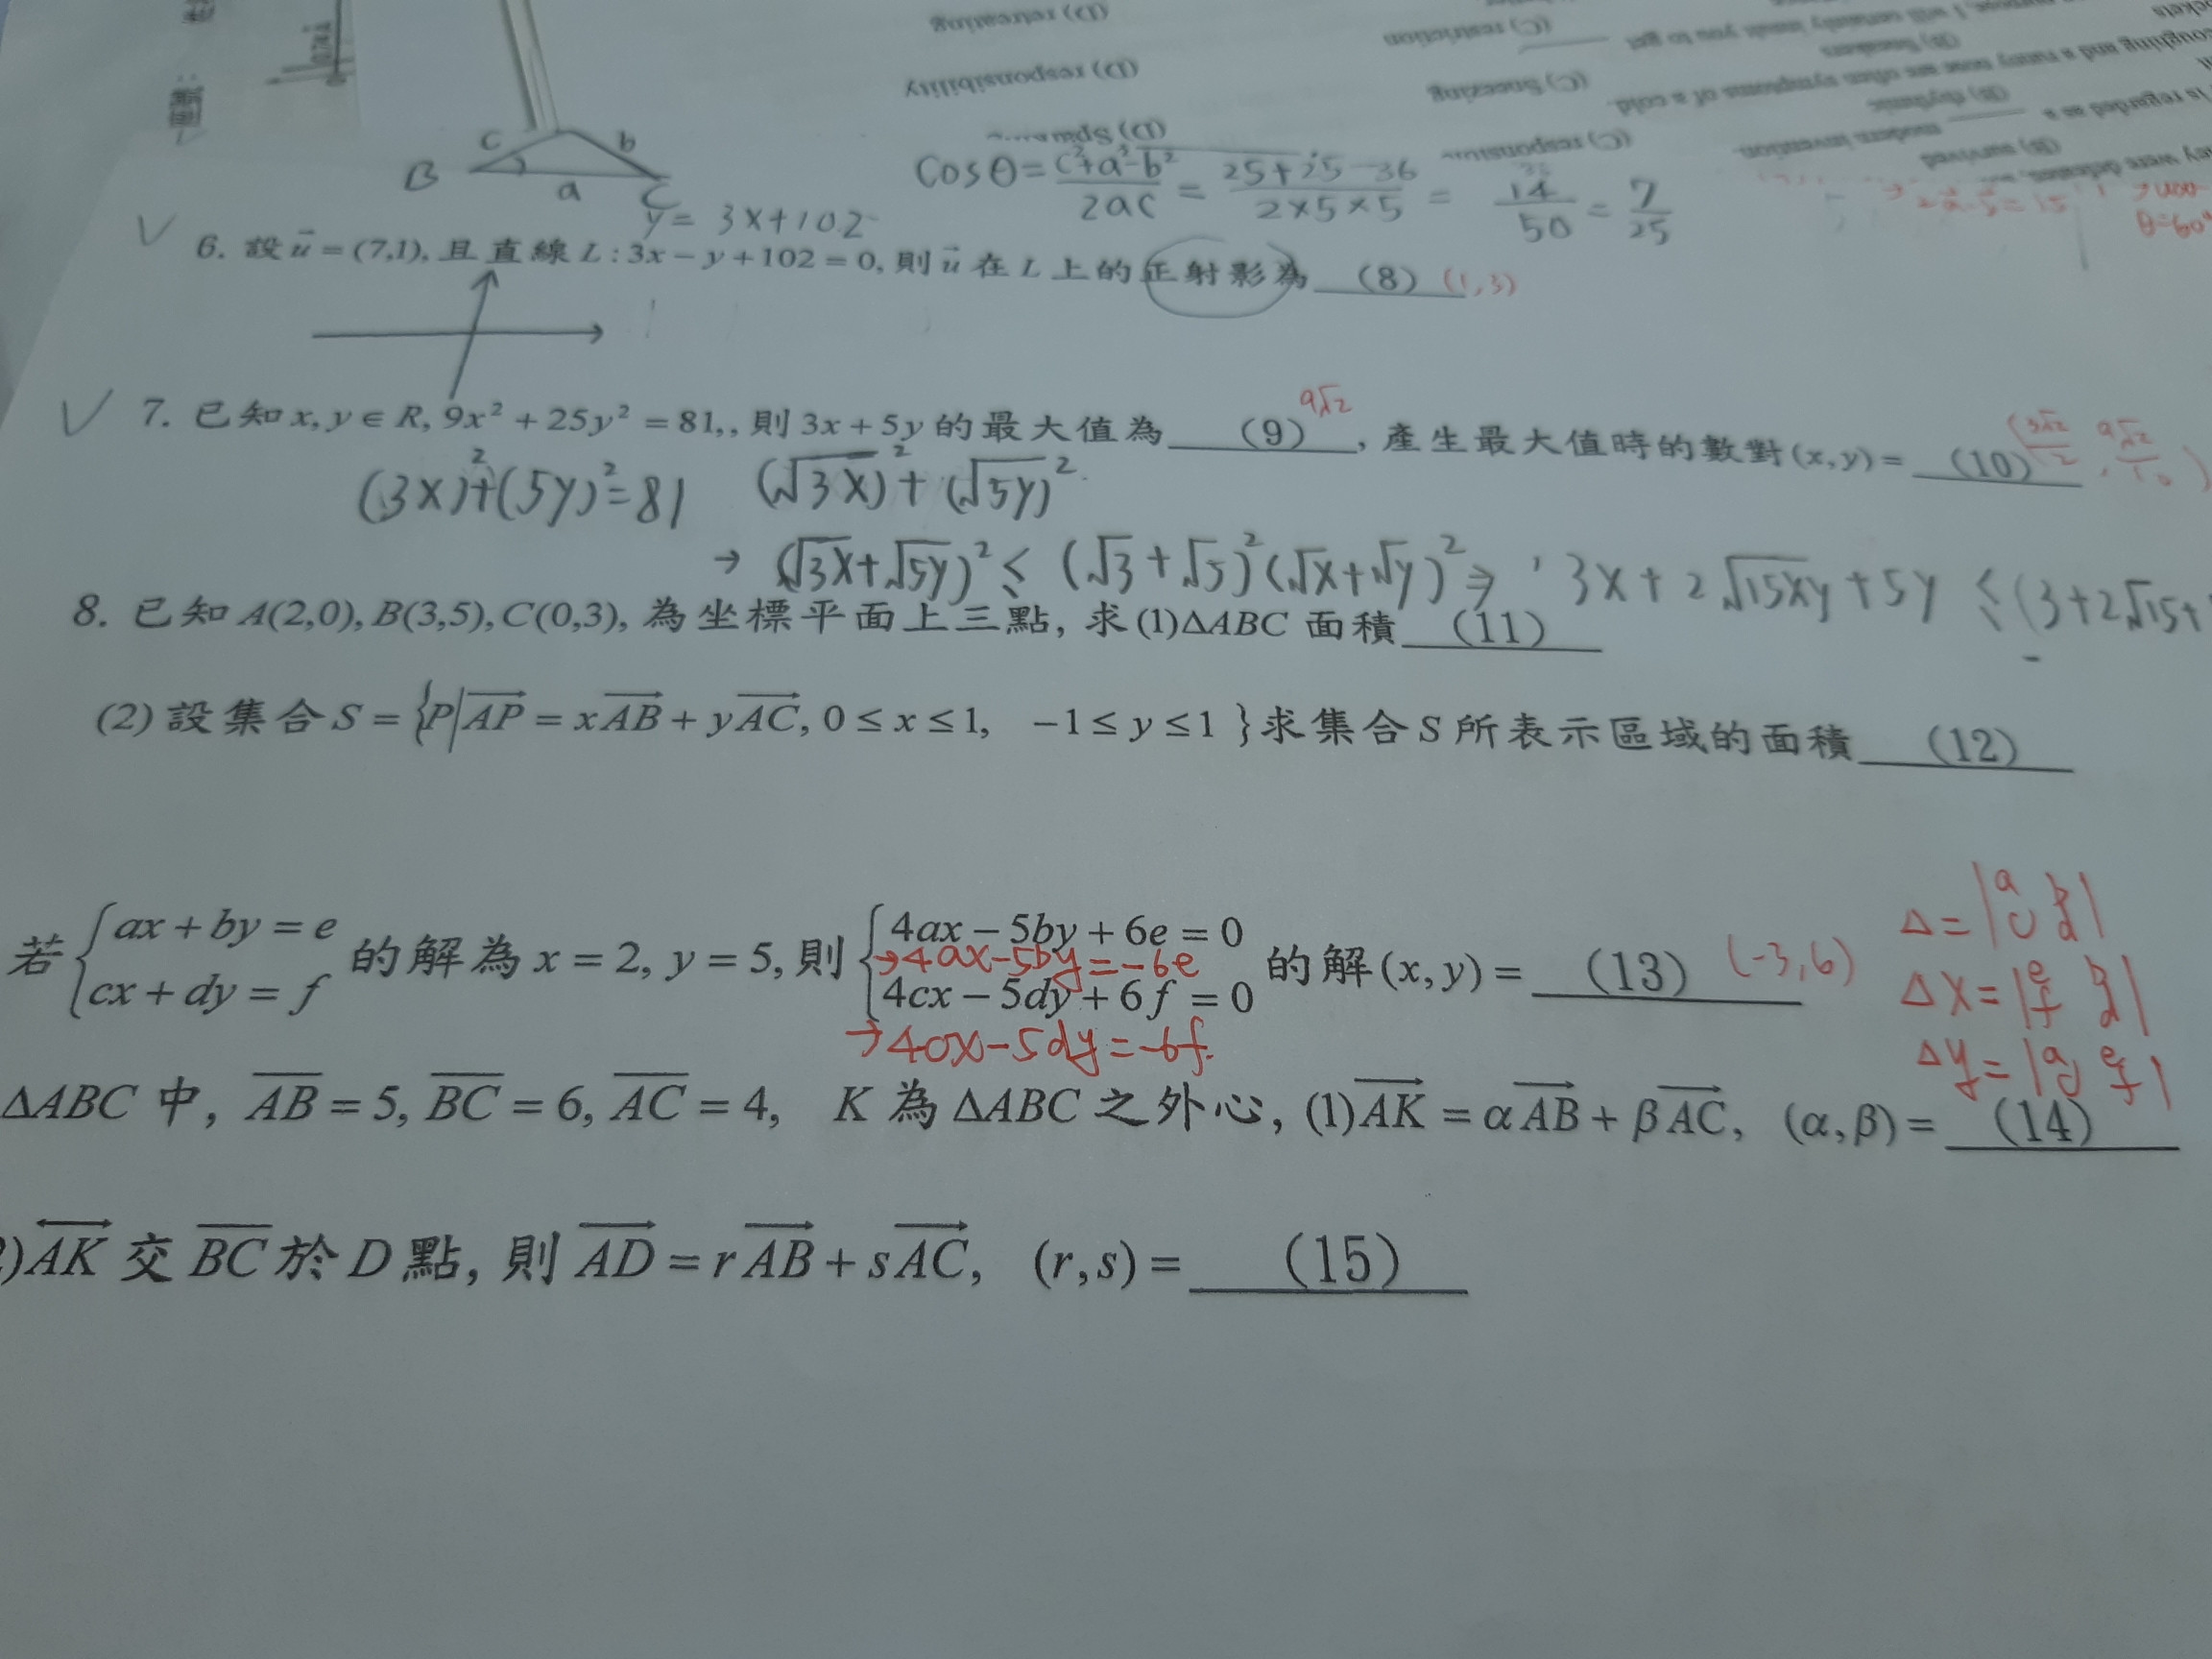 (D) retreating
(C) restriction
(D) responsibility
(C) Sneezing
B c b a C
Cosθ = c²+a²-b² / 2ac = 25+25-36 / 2×5×5 = 14/50 = 7/25
y = 3x+102
6. 設 u = (7,1), 且直線 L : 3x − y + 102 = 0, 則 u 在 L 上的正射影為 (8) (1,3)
7. 已知 x, y ∈ R, 9x² + 25y² = 81,, 則 3x + 5y 的最大值為 (9) 9√2 , 產生最大值時的數對 (x, y) = (10) (3√2/2, 9√2/10)
(3x)²+(5y)²=81 (√3x)²+(√5y)²
→ (√3x+√5y)² ≤ (√3+√5)²(√x+√y)² ⇒ 3x+2√15xy+5y ≤ (3+2√15+
8. 已知 A(2,0), B(3,5), C(0,3), 為坐標平面上三點, 求 (1)ΔABC 面積 (11)
(2) 設集合 S = {P|AP = xAB + yAC, 0 ≤ x ≤ 1, −1 ≤ y ≤ 1 } 求集合 S 所表示區域的面積 (12)
若 { ax + by = e 的解為 x = 2, y = 5, 則 { 4ax − 5by + 6e = 0 的解 (x, y) = (13) (-3,6)
→4ax-5by=-6e
cx + dy = f 4cx − 5dy + 6f = 0
→4cx-5dy=-6f
Δ = |a b c d|
Δx = |e b f d|
Δy = |a e c f|
ΔABC 中, AB = 5, BC = 6, AC = 4, K 為 ΔABC 之外心, (1)AK = αAB + βAC, (α, β) = (14)
)AK 交 BC 於 D 點, 則 AD = rAB + sAC, (r, s) = (15)